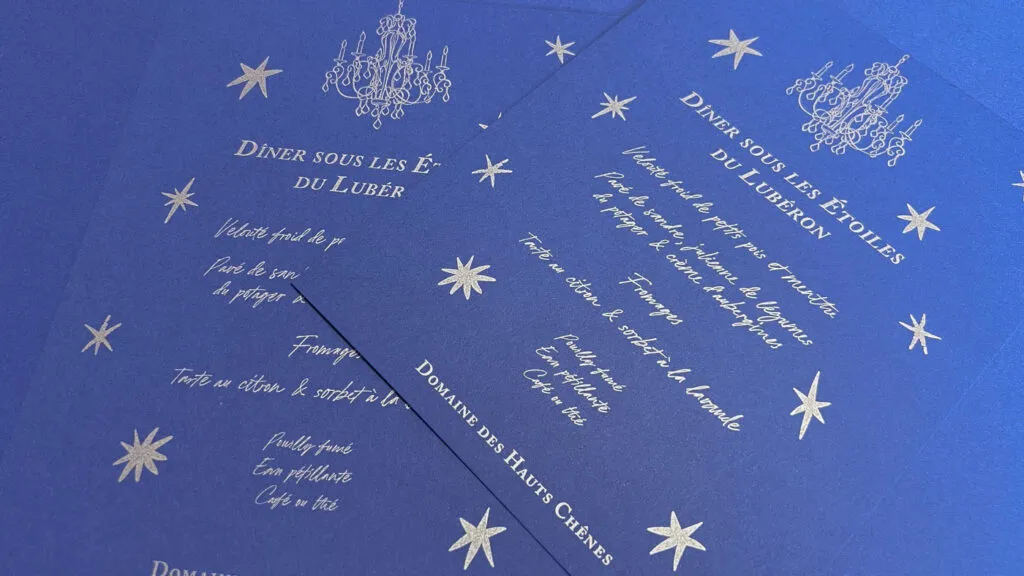 DÎNER SOUS LES É
DU LUBÉR
Velouté froid de p
Pavé de san
du potager
Fromages
Tarte au citron & sorbet à la
Pouilly fumé
Eau pétillante
Café ou thé
DOMAIN
DÎNER SOUS LES ÉTOILES
DU LUBÉRON
Velouté froid de petit pois et menthe
Pavé de sandre, julienne de légumes
du potager & crème d'aubergines
Fromages
Tarte au citron & sorbet à la lavande
Pouilly fumé
Eau pétillante
Café ou thé
DOMAINE DES HAUTS CHÊNES